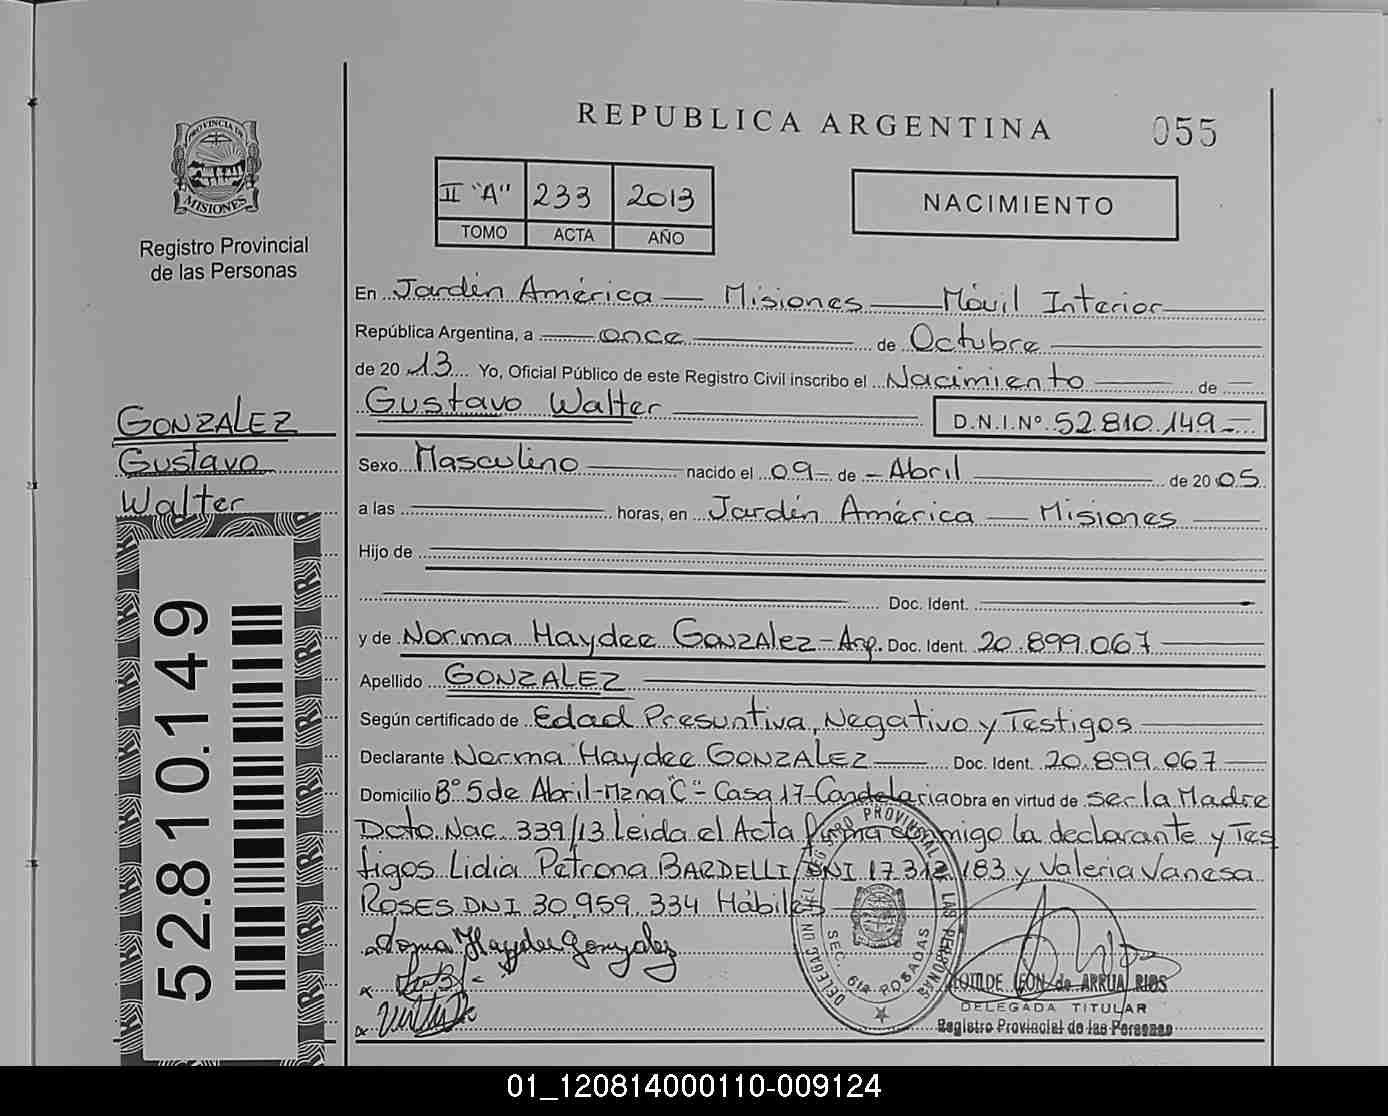 REPUBLICA ARGENTINA
055
PROVINCIA DE
MISIONES
Registro Provincial
de las Personas
II "A" 233 2013
TOMO ACTA AÑO
NACIMIENTO
En Jardín América — Misiones — Móvil Interior
República Argentina, a once de Octubre
de 2013 Yo, Oficial Público de este Registro Civil inscribo el Nacimiento de
Gustavo Walter
D.N.I.Nº 52.810.149
GONZALEZ
Gustavo
Walter
Sexo Masculino nacido el 09 de Abril de 2005
a las horas, en Jardín América — Misiones
Hijo de
Doc. Ident.
y de Norma Haydee GONZALEZ - Arg. Doc. Ident. 20.899.067
Apellido GONZALEZ
Según certificado de Edad Presuntiva, Negativo y Testigos
Declarante Norma Haydee GONZALEZ Doc. Ident. 20.899.067
Domicilio Bº 5 de Abril - Mzna "C" - Casa 17 - Candelaria Obra en virtud de ser la Madre
Dcto. Nac. 339/13 Leida el Acta firma conmigo la declarante y Tes
tigos Lidia Petrona BARDELLI DNI 17.312.183 y Valeria Vanesa
ROSES DNI 30.959.334 Hábiles
Norma Haydee Gonzalez
SEC. 6ta POSADAS
CLOTILDE LEON de ARRUA RIOS
DELEGADA TITULAR
Registro Provincial de las Personas
52.810.149
01_120814000110-009124